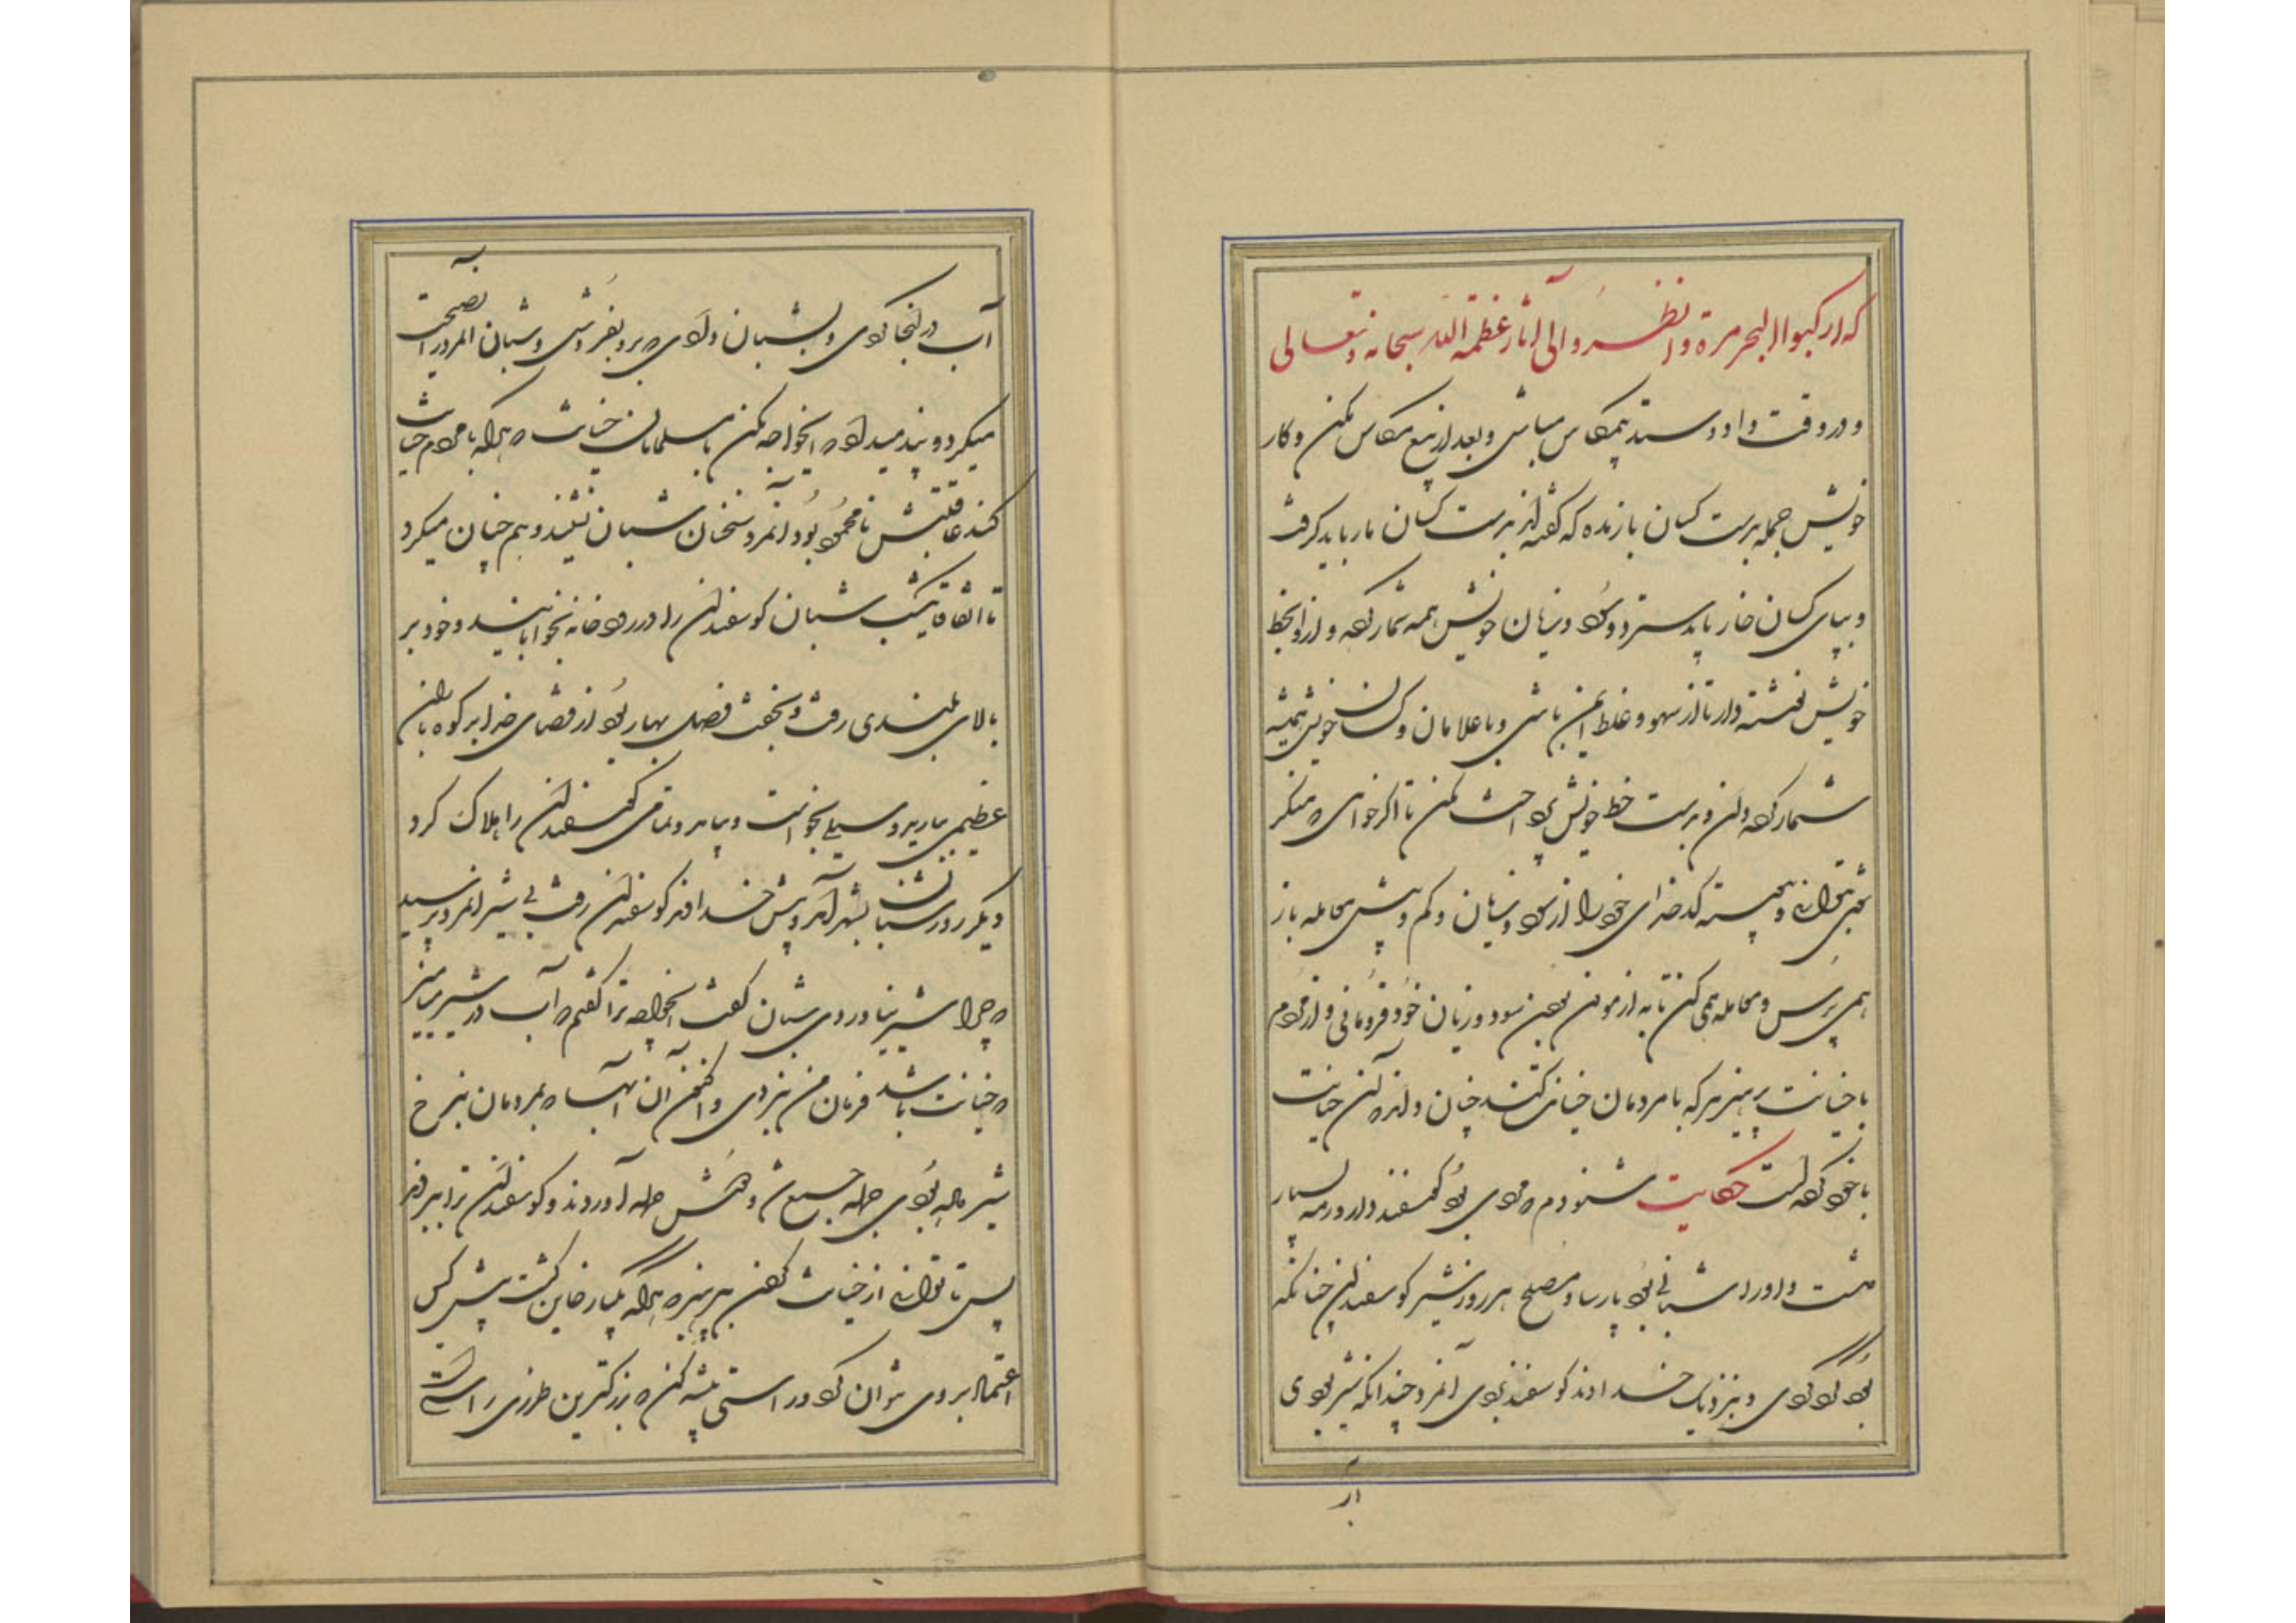 که ارکبوا البحر مرة وانظروا الی آثار عظمة الله سبحانه و تعالی
و در وقت داد و ستد بی مکاس مباش و بعد از بیع مکاس مکن و کار
خویش جمله بدست کسان باز مده که گفته‌اند بدست کسان مار باید گرفت
و بپای کسان خار باید سپرد و سود و زیان خویش همه شمار کرده دار و بخط
خویش نبشته دار تا از سهو و غلط ایمن باشی و با غلامان و کسان خویش همیشه
شمار کرده دان و بدست خط خویش واجب مکن تا اگر خواهی که منکر
شوی بتوانی و پیوسته کدخدای خود را از سود و زیان و کم و بیش معامله باز
همی پرس و معامله همی کن تا به آزمودن از سود و زیان خود فرو نمانی و از مردم
با خیانت بپرهیز هر که با مردمان خیانتی کند چنان داند که آن خیانت
با خود کرده است حکایت شنودم که مردی بود گوسفنددار و رمه بسیار
داشت و او را شبانی بود پارسا و مصلح هر روز شیر گوسفندان چنانکه
بودی و بنزدیک خداوند گوسفند بردی آنمرد چندانکه شیر بودی
آب
آب در آنجا کردی و بشبان دادی که برو بفروش و شبان آنمرد را نصیحت
میکرد و پند میداد که ایخواجه مکن با مسلمانان خیانت که هر که با مردم خیانت
کند عاقبتش نامحمود بود آنمرد سخنان شبان نشنید و هم چنان میکرد
تا اتفاق یکشب شبان گوسفندان را در رودخانه بخوابانید و خود بر
بالای بلندی رفت و بخفت فصل بهار بود از قضای خدا بر کوه باران
عظیمی ببارید و سیلی بخواست و بیامد و تمامی گوسفندان را هلاک کرد
دیگر روز شبان بشهر آمد و پیش خداوند گوسفندان رفت بی شیر آنمرد پرسید
که چرا شیر نیاوردی شبان گفت ایخواجه ترا گفتم که آب در شیر میامیز
که خیانت باشد فرمان من نبردی و اکنون آن آبها که بمردمان بنرخ
شیر داده بودی جمله جمع شد و دوش حمله آوردند و گوسفندان ترا ببردند
پس تا توانی از خیانت کردن بپرهیز که هر که یکبار خاین گشت پیش کس
اعتماد بر وی نتوان کرد و راستی پیشه کن که بزرگترین طرزی راستی است